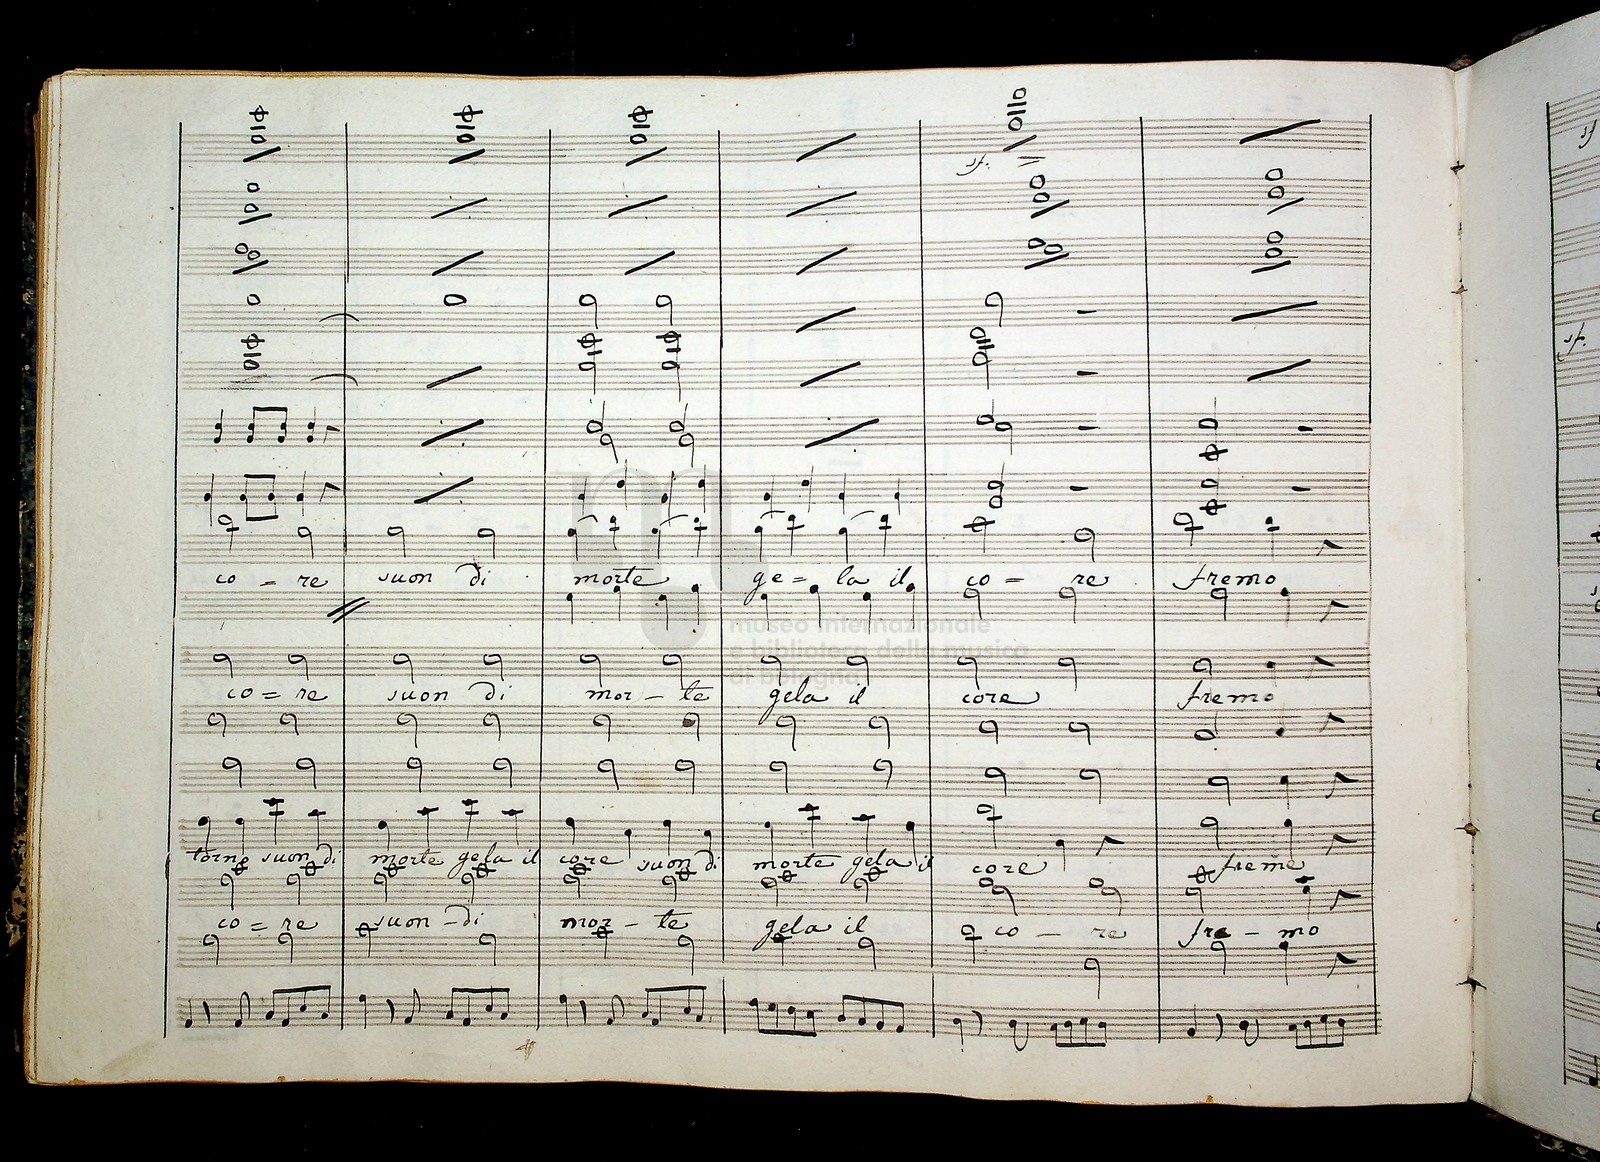 sf.
co = re suon di morte ge = la il co = re fremo
museo internazionale
e biblioteca della musica
di bologna
co = re suon di mor - te gela il core fremo
torno suon di morte gela il core suon di morte gela il core freme
co = re suon - di mor - te gela il co - re fre - mo
sf
sf.